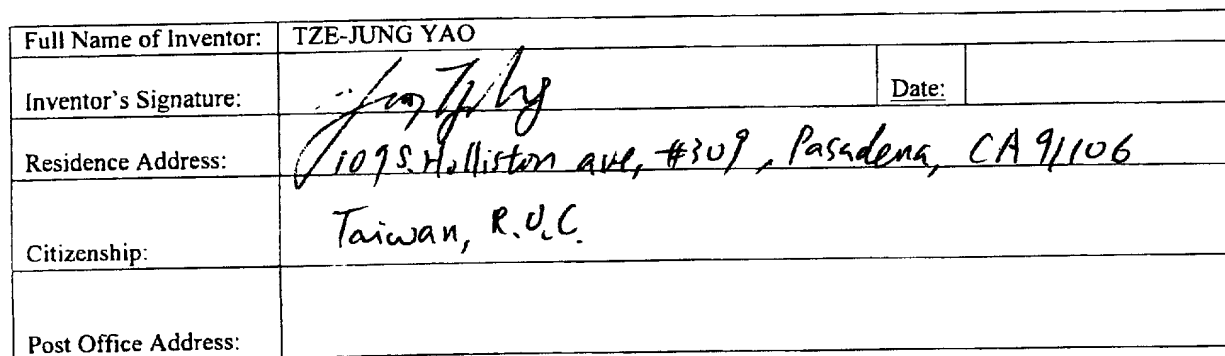 Full Name of Inventor: TZE-JUNG YAO
Inventor's Signature: Date:
Residence Address: 109 S. Holliston ave, #309, Pasadena, CA 91106
Citizenship: Taiwan, R.O.C.
Post Office Address: